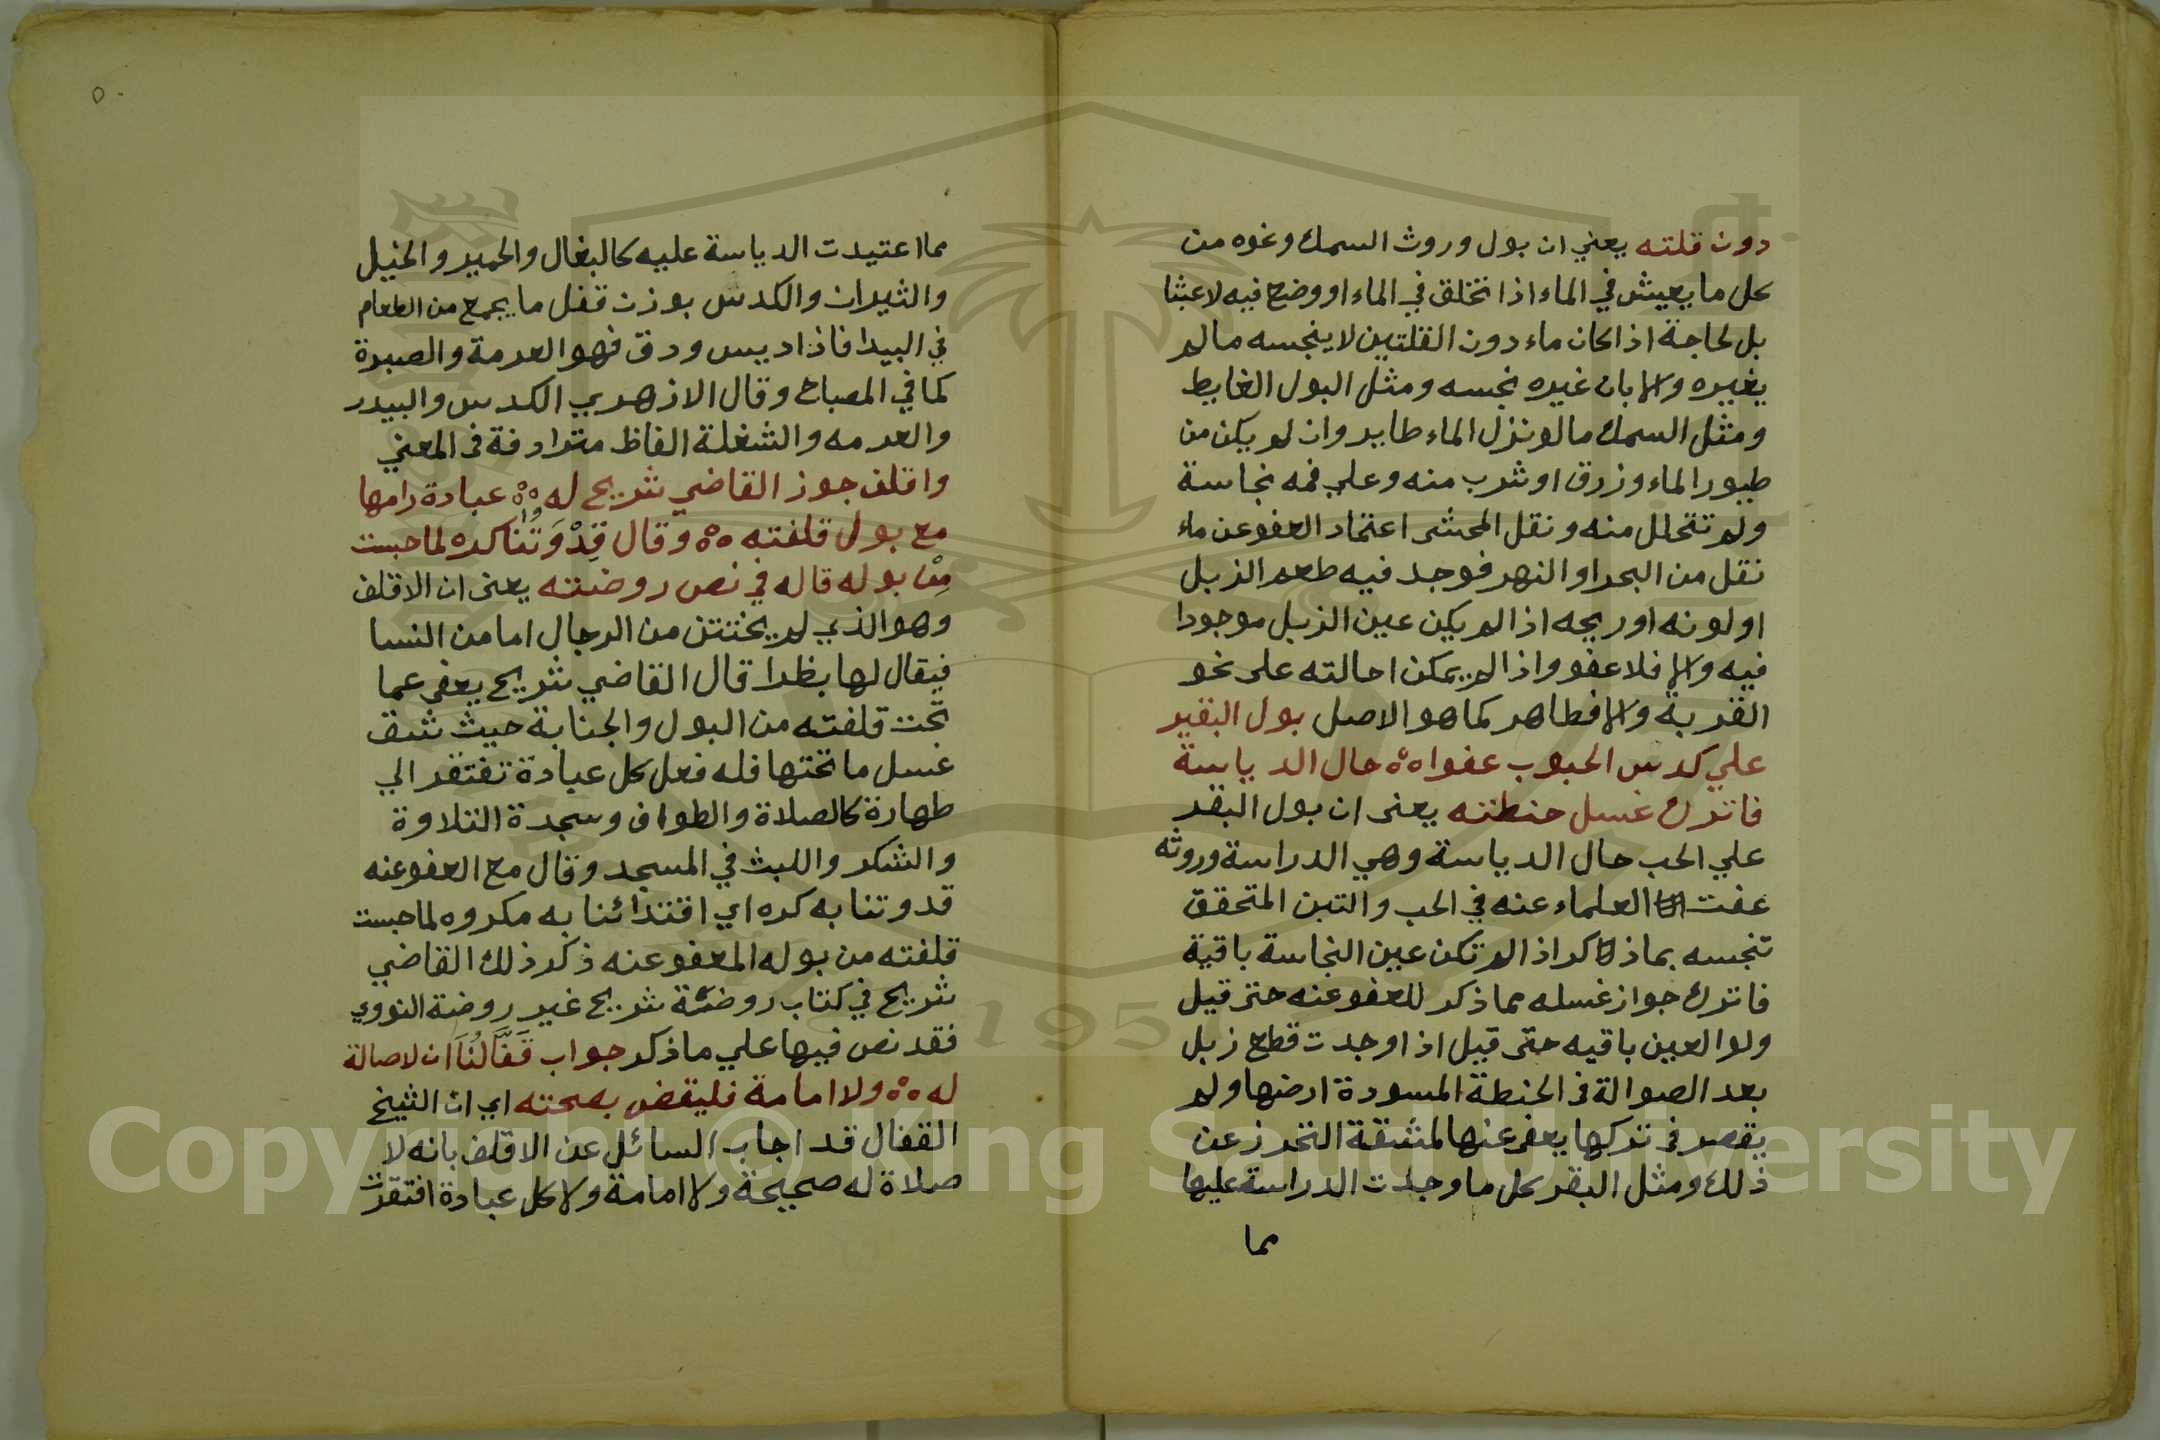 دون قلته يعني ان بول وروث السمك ونحوه من
كل ما يعيش في الماء اذا تخلق في الماء او وضع فيه لا عبثا
بل لحاجة اذا كان ماء دون القلتين لا ينجسه ما لم
يغيره والا بان غيره نجسه ومثل البول الغايط
ومثل السمك ما لو نزل الماء طاير وان لم يكن من
طيور الماء وزرق او شرب منه وعلي فمه نجاسة
ولم تتحلل منه ونقل المحشى اعتماد العفو عن ماء
نقل من البحر او النهر فوجد فيه طعم الزبل
او لونه او ريحه اذا لم يكن عين الزبل موجودا
فيه والا فلا عفو واذا لم يمكن احالته على نحو
القربة والا فطاهر كما هو الاصل بول البقير
علي كدس الحبوب عفوا ه ه حال الدياسة
فاترك غسل حنطته يعنى ان بول البقر
علي الحب حال الدياسة وهي الدراسة وروثه
عفت العلماء عنه في الحب والتبن المتحقق
تنجسه بما ذكر اذا لم تكن عين النجاسة باقية
فاترك جواز غسله مما ذكر للعفو عنه حتى قيل
ولو العين باقيه حتى قيل اذا وجدت قطع زبل
بعد الصوالة فى الحنطة المسودة ارضها ولم
يقصر فى تركها يعفى عنها لمشقة التحرز عن
ذلك ومثل البقر كل ما وجدت الدراسة عليها
مما
٥٠
مما اعتيدت الدياسة عليه كالبغال والحمير والخيل
والثيران والكدس بوزن قفل ما يجمع من الطعام
في البيدا فاذا ديس ودق فهو العرمة والصبرة
كما في المصباح وقال الازهري الكدس والبيدر
والعرمه والشغلة الفاظ مترادفة فى المعني
واقلف جوز القاضي شريح له ه ه عبادة رامها
مع بول قلفته ه ه وقال قِدْوَتُنا كره لما حبست
مِنْ بوله قاله في نص روضته يعنى ان الاقلف
وهو الذي لم يختتن من الرجال اما من النسا
فيقال لها بظرا قال القاضي شريح يعفى عما
تحت قلفته من البول والجنابة حيث شق
غسل ما تحتها فله فعل كل عبادة تفتقر الي
طهارة كالصلاة والطواف وسجدة التلاوة
والشكر واللبث في المسجد وقال مع العفو عنه
قدوتنا به كره اي اقتدائنا به مكروه لما حبست
قلفته من بوله المعفو عنه ذكر ذلك القاضي
شريح في كتاب روضة شريح غير روضة النووي
فقد نص فيها علي ما ذكر جواب قَفَّالُنَا ان لا صالة
له ه ه ولا امامة فليقض بصحته اي ان الشيخ
القفال قد اجاب السائل عن الاقلف بانه لا
صلاة له صحيحة ولا امامة ولا كل عبادة افتقرت
Copyright © King Saud University
195